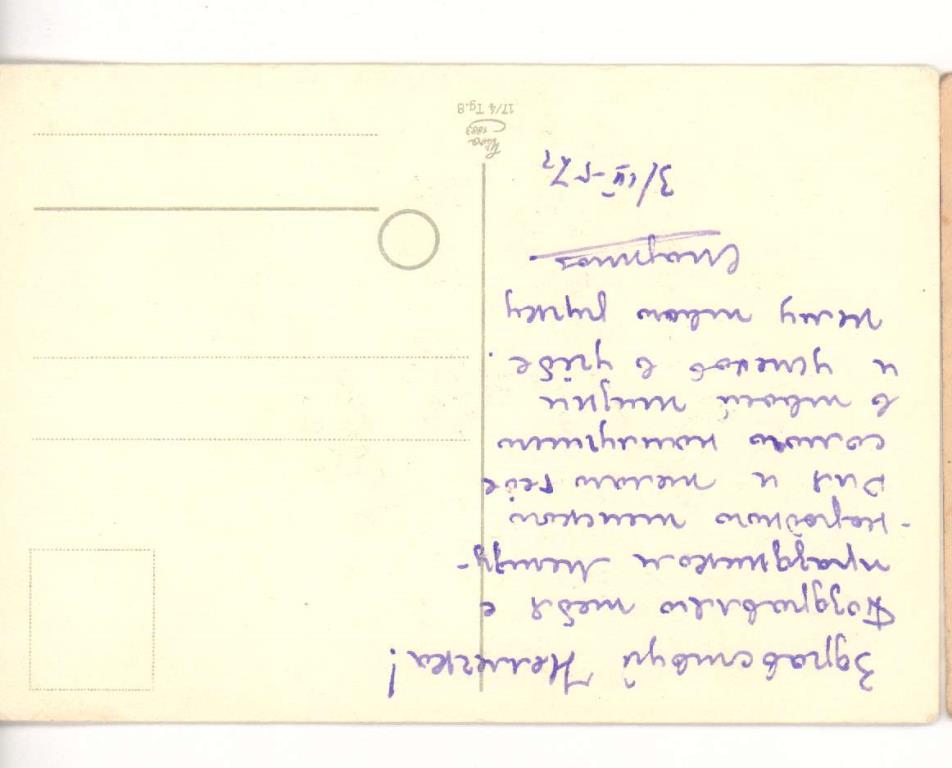 Здравствуй Нелечка!
Поздравляю тебя с
праздником Между-
-народным женским
Дня и желаю тебе
самого наилучшего
в твоей жизни
и успехов в учёбе.
жму твою руку
3/III-72
17/4 Tg.8
1883